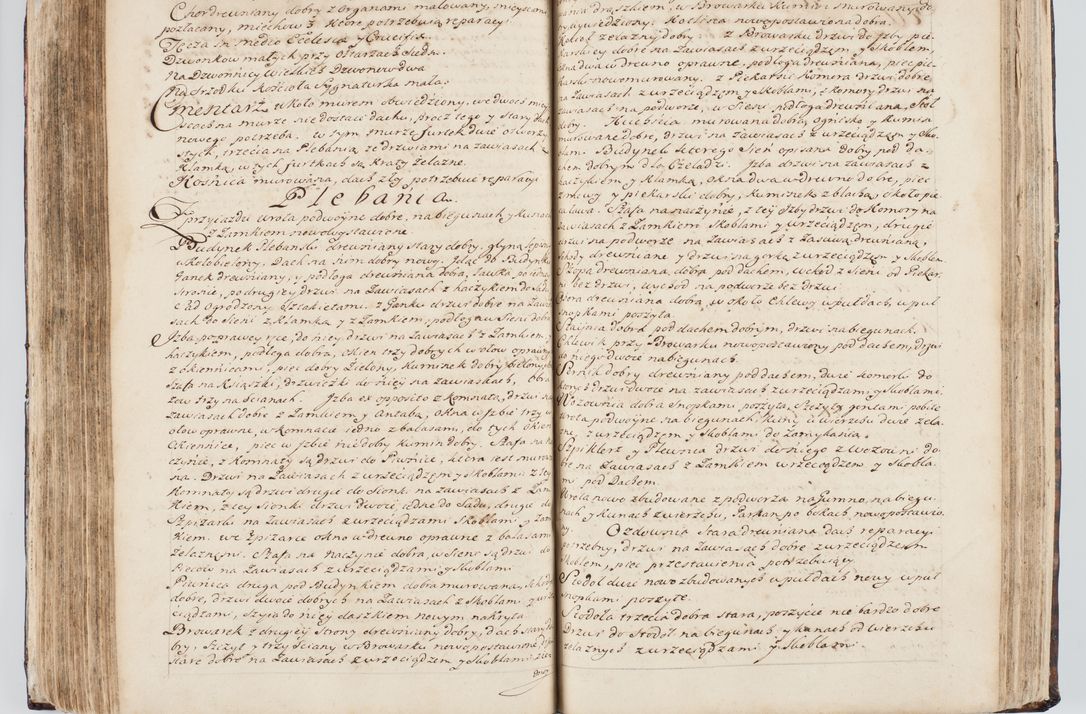 Chor drewniany dobry z Organami malowany, mieyscem
pozłacany, miechow 3. które potrzebuią reparacyi
Dzwonkow małych przy Ołtarzach siedm.
Na Dzwonnicy Wielkich Dzwonow dwa
Na srzodku Kościoła Sygnaturka mała.
Cmentarz w koło murem obwiedziony, we dwoch miey
scach na murze nie dostaie dachu, procz tego y stary dach
nowego potrzeba. w tym murze furtek dwie otworzy
stych, trzecia na Plebanią ze drzwiami na zawiasach z
Klamką, w tych furtkach są Kraty żelazne.
Kośnica murowana, dach zły potrzebuie reparacyi
Plebania.
przyiazdu wrota podwoyne dobre, na biegunach y kunach
z Zamkiem nowo dług stawione
Budynek Plebanski drewniany stary dobry, gliną
w koło bielony, Dach na nim dobry nowy. Idąc do Budynku
Ganek drewniany, y podłoga drewniana dobra, ławka po iedney
stronie, po drugiey drzwi na Zawiasach z haczykiem do Sadu
z Ganku drzwi dobre na Zawia
sach do Sieni z Klamką y z Zamkiem, podłoga w Sieni dobra
Izba po prawey ręce, do niey drzwi na Zawiasach z Zamkiem, y
haczykiem, podłoga dobra, okien trzy dobrych w ołow oprawnych
z okiennicami, piec dobry Zielony, Kuminek dobry bielony
Szafa na Książki, drzwiczki do niey na zawiaskach, Obra
zow trzy na ścianach. Izba ex opposito z Komnatą, drzwi na
zawiasach dobre z Zamkiem y antabą, Okna w Izbie trzy w
ołow oprawne, w Komnacie iedno z balasami, do tych okien
Okiennice, piec w Izbie niedobry kumin dobry. Szafa na na
czynie, z Komnaty są drzwi do Piwnice, która iest murowa
na. Drzwi na Zawiasach z wrzeciądzem y skoblami z tey
Komnaty są drzwi drugie do Sionki na zawiasach z Zam
kiem, z tey Sionki drzwi dwoie, iedne do Sadu, drugie do
Spizarki na Zawiasach z wrzeciądzami Skoblami y Zam
kiem. we Spizarce okno w drewno oprawne z balasami
żelaznemi. Szafa na Naczynie dobra, w Sieni są drzwi do
na Zawiasach z wrzeciądzami y Skoblami
Piwnica druga pod Budynkiem dobra murowana,
dobre, drzwi dwoie dobrych na Zawiasach z Skoblami y wrze
ciądzami, szyia do niey daszkiem nowym nakryta
Browarek z drugiey strony drewniany dobry, dach stary do
bry, szczyt y trzy ściany w Browarku nowo postawione, drzwi
stare dobre na Zawiasach z wrzeciądzem y Skoblami

w Browarku Kumin murowany do
bry, wywiedziony. Kotlina nowo postawiona dobra.
Kocioł żelazny dobry z Browarku drzwi do Izby pie
karskiey dobre na Zawiasach z wrzeciądzem, y Skoblem,
okna dwa w drewno oprawne, podłoga drewniana, piec pie
karski nowo murowany. z Piekarnie Komora drzwi dobre
na Zawiasach z wrzeciądzem y Skoblami, z Komory drzwi na
zawiasach na podworze, w Sieni podłoga drewniana, Stół
dobry. Kuchnia murowana dobra, ognisko y Kumin
murowane dobre, drzwi na zawiasach z wrzeciądzem y Sko
blami. Budynek którego Sień opisana dobry pod da
chem dobrym dla Czeladzi. Izba drzwi na zawiasach z
haczykiem y Klamką, okna dwa w drewno dobre, piec
y piekarski dobry, kuminek z blachą, około pie
ca ława. Szafa na naczynie, z tey Izby drzwi do Komory na
Zawiasach z Zamkiem Skoblami y wrzeciądzem, drugie
drzwi na podworze na Zawiasach z Zasuwą drewnianą,
schody drewniane y drzwi na gorkę z wrzeciądzem y Skoblem
Szopa drewniana dobra pod dachem, wchod z Sieni od Piekar
ni bez drzwi, wychod na podworze bez drzwi
Obora drewniana dobra, w około Chlewy w pułdach, w puł
snopkami poszyta.
Staynia dobra pod dachem dobrym, drzwi na biegunach.
Chlewik przy Browarku nowo postawiony pod dachem, drzwi
do niego dwoie na biegunach.
dobry drewniany pod dachem, dwie komorki do
ktorych drzwi dwoie na zawiasach z wrzeciądzami y skoblami.
Wozownia dobra snopkami poszyta, Szczyty gontami pobite
Wrota podwoyne na biegunach, kuny u wierzchu dwie żela
zne z wrzeciądzem y Skoblami do zamykania.
Szpiklerz y Plewnia drzwi do niego z wozowni do
bre na Zawiasach z Zamkiem wrzeciądzem y Skobla
mi pod Dachem.
Wrota nowo zbudowane z podworza na Gumno, na biegu
nach y kunach z wierzchu, Parkan po bokach nowo postawio
ny. Ozdownia Stara drewniana dach reparacyi
potrzebny, drzwi na Zawiasach dobre z wrzeciądzem
Skoblem, piec przestawienia potrzebuiący
Stodół dwie nowo zbudowanych w pułdach nowy w puł
snopkami poszyte.
Stodoła trzecia dobra stara, poszycie nie bardzo dobre
Drzwi do Stodół na biegunach y kunach od wierzchu
żelaznych z wrzeciądzami y Skoblami.